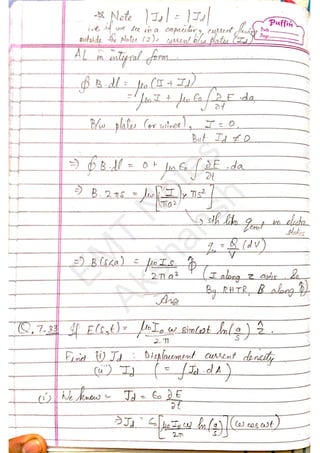 * Note |I_d| = |I_d|
i.e if we see in a capacitor, current flowing
outside the plates (I) = current b/w plates (I_d)
Puffin
Date
Page
AL in integral form
∮ B.dl = μ₀(I + I_d)
= μ₀I + μ₀ε₀ ∫ ∂E/∂t . da
B/w plates (or wires), I = 0.
But I_d ≠ 0
⇒ ∮ B.dl = 0 + μ₀ε₀ ∫ ∂E/∂t . da
⇒ B.2πs = μ₀ [ I/πa² × πs² ]
sth like q_encl in electro
statics
q = Q/V (dV)
⇒ B(s<a) = μ₀Is/2πa² φ̂
(I along z axis. So
By RHTR, B along φ̂)
Ans
Q. 7.33 If E(s,t) = μ₀I₀ω/2π sinωt ln(a/s) ẑ.
Find (i) J_d : Displacement current density
(ii) I_d = ∫ J_d . dA
(i) We know - J_d = ε₀ ∂E/∂t
⇒ J_d = ε₀ [μ₀I₀ω/2π ln(a/s)] (ω cosωt)
EMT Notes
Akanksha